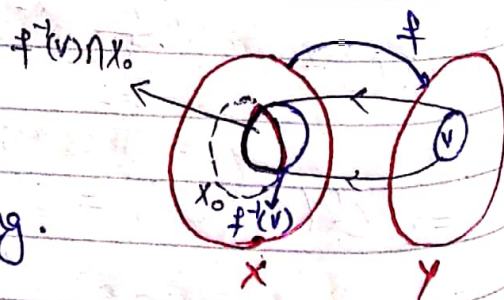 f⁻¹(V)∩X₀
f
V
X₀
f⁻¹(V)
g.
X
Y